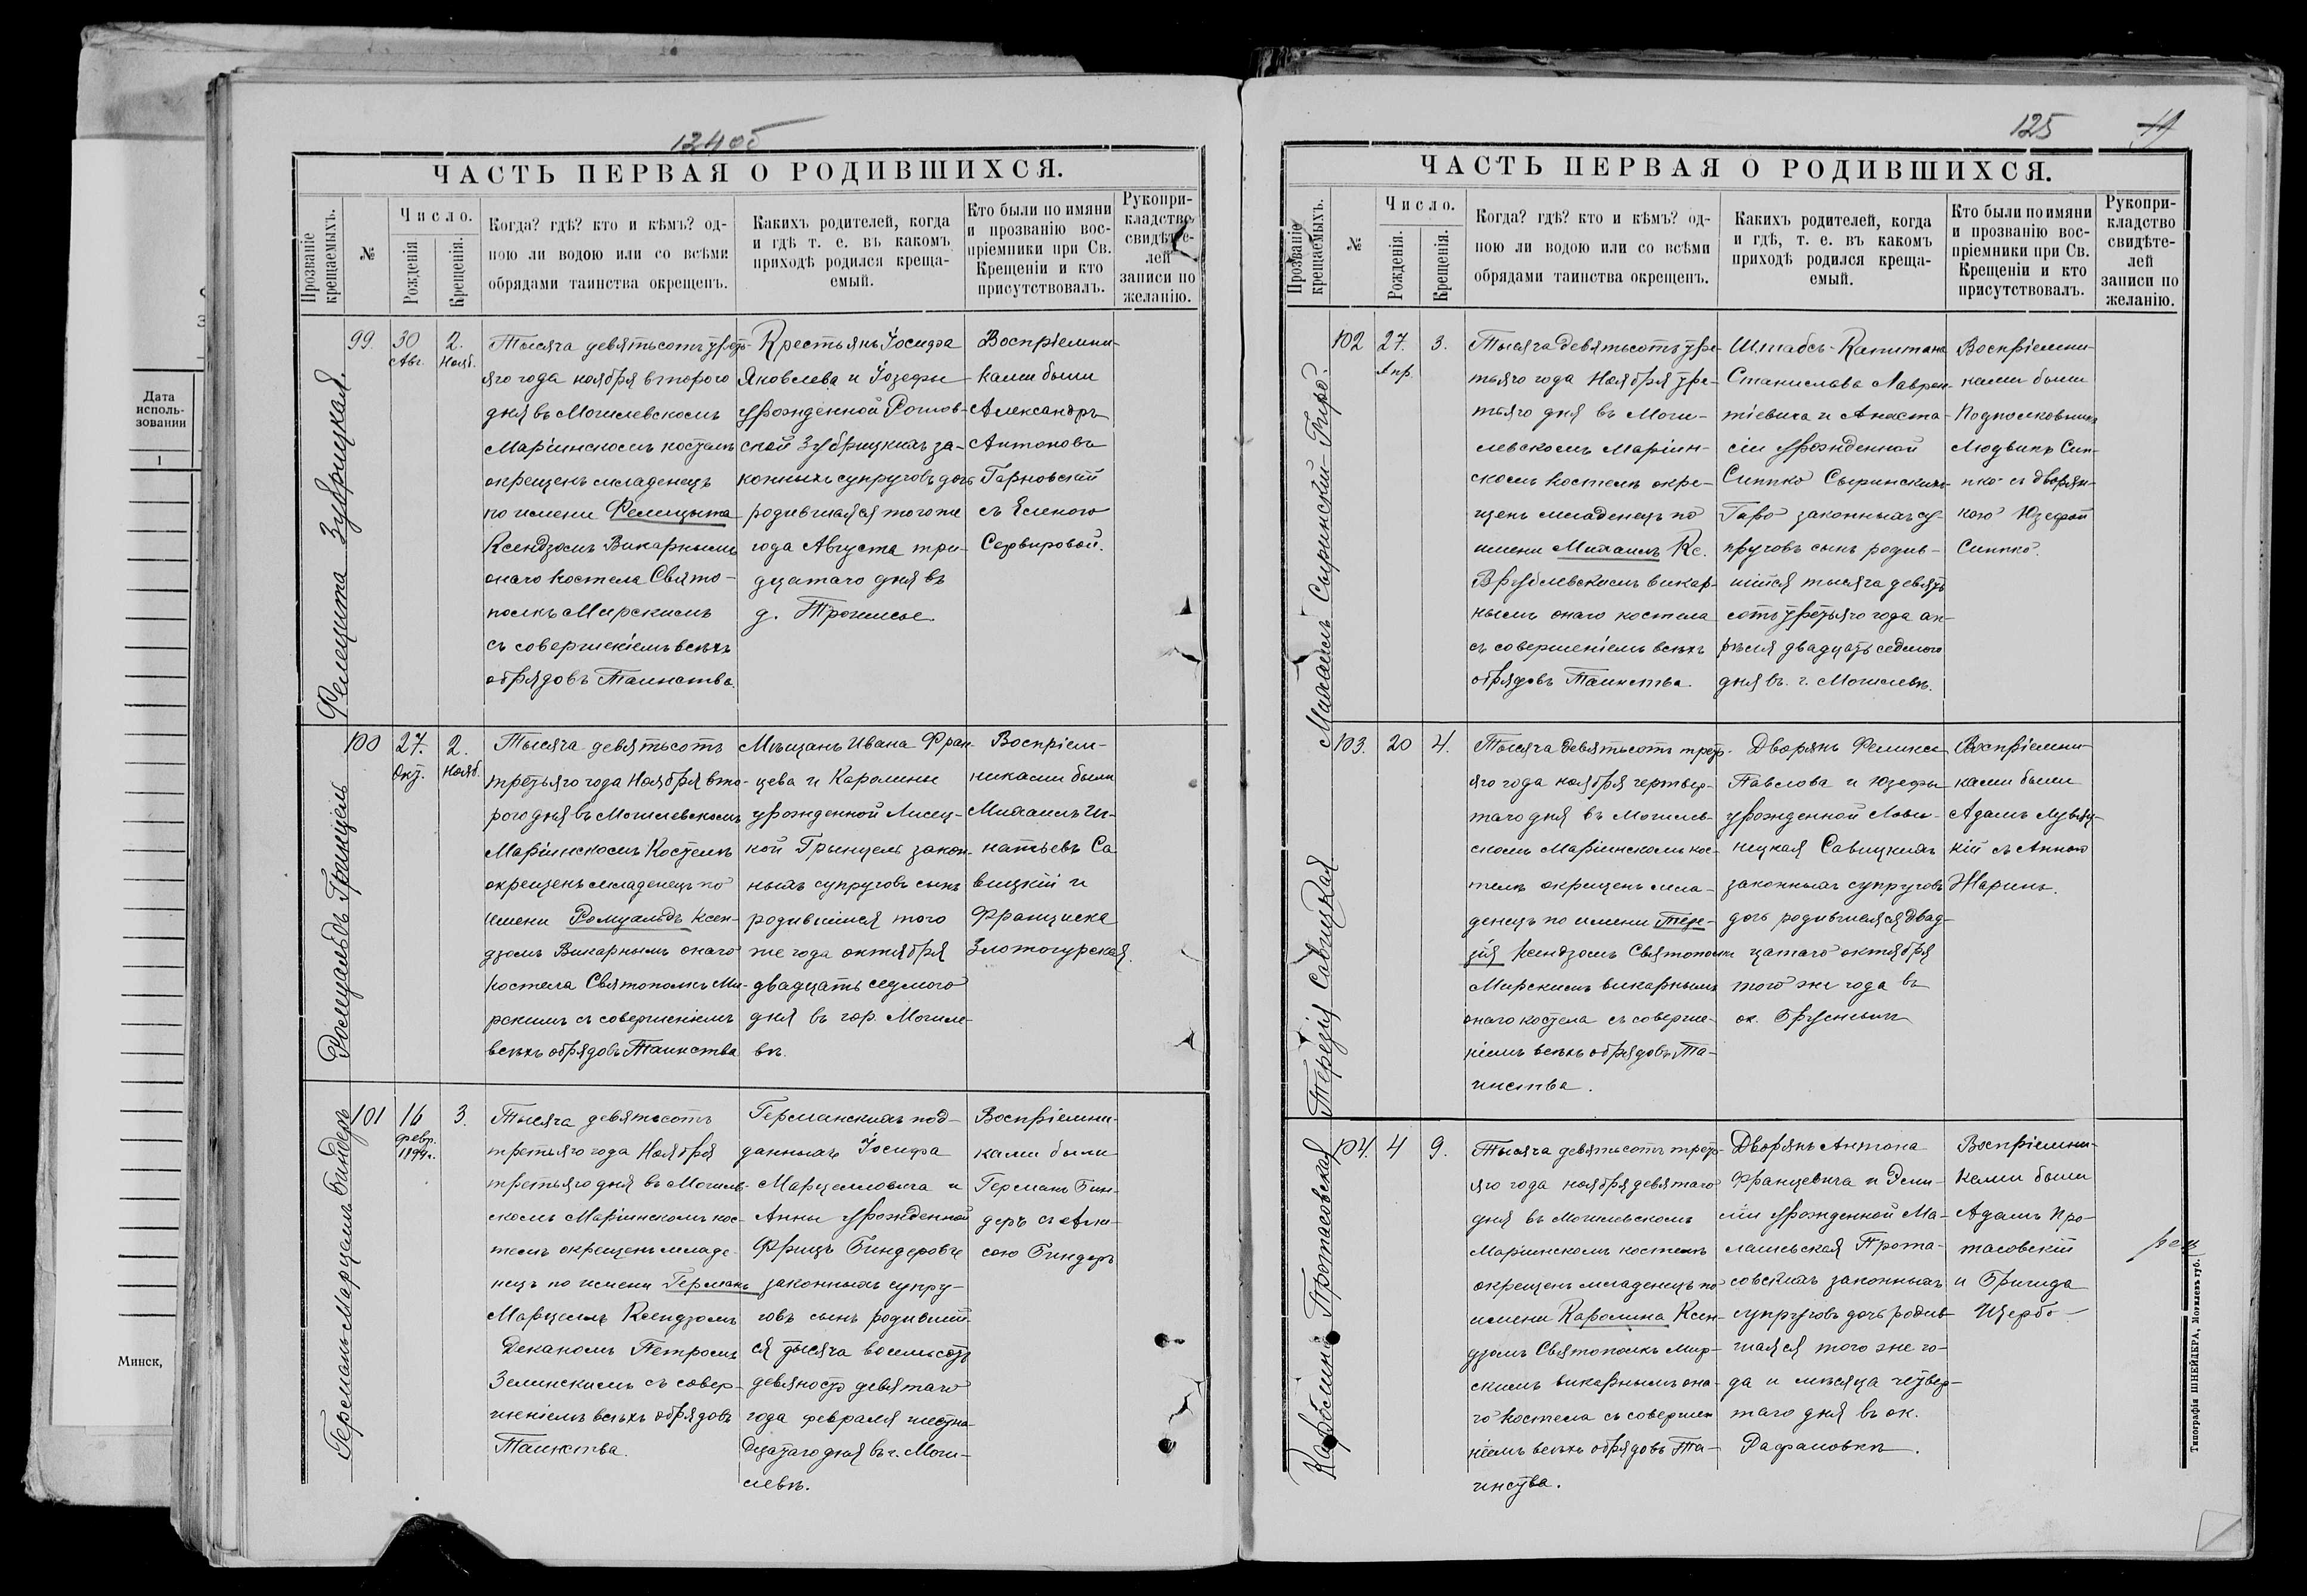 Дата
исполь-
зовании
1
Минск,
124об
ЧАСТЬ ПЕРВАЯ О РОДИВШИХСЯ.
Прозваніе
крещаемыхъ.
№
Число.
Рожденія
Крещенія.
Когда? гдѣ? кто и кѣмъ? од-
ною ли водою или со всѣми
обрядами таинства окрещенъ.
Какихъ родителей, когда
и гдѣ т. е. въ какомъ
приходѣ родился креща-
емый.
Кто были по имяни
и прозванію вос-
пріемники при Св.
Крещеніи и кто
присутствовалъ.
Рукопри-
кладство
свидѣте-
лей
записи по
желанію.
Фелецита Зубрицкая.
99.
30
Авг.
2.
Нояб.
Тысяча девятьсотъ треть-
яго года ноября второго
дня въ Могилевскомъ
Маріинскомъ костелѣ
окрещенъ младенецъ
по имени Фелицыта
Ксендзомъ Викарнымъ
онаго костела Свято-
полкъ Мирскимъ
съ совершеніемъ всѣхъ
обрядовъ Таинства.
Крестьянъ Іосифа
Яковлева и Іозефы
урожденной
ской Зубрицкихъ за-
конныхъ супруговъ дочь
родившаяся того же
года Августа три-
дцатаго дня въ
д.
Воспріемни-
ками были
Александръ
Антоновъ
Тарновскій
съ Еленого
Сервировой.
Ромуальдъ Грынцель
100
27.
Окт.
2.
Нояб.
Тысяча девятьсотъ
третьяго года Ноября вто-
рого дня въ Могилевскомъ
Маріинскомъ Костелѣ
окрещенъ младенецъ по
имени Ромуальдъ Ксен-
дзомъ Викарнымъ онаго
костела Святополкъ Ми-
рскимъ съ совершеніемъ
всѣхъ обрядовъ Таинства
Мѣщанъ Ивана Фран-
цева и Каролины
урожденной Лисец-
кой Грынцель закон-
ныхъ супруговъ сынъ
родившійся того
же года октября
двадцать седмого
дня въ гор. Могиле-
вѣ.
Воспріем-
никами были
Михаилъ Иг-
натьевъ Са
вицкій и
Франциска
Злотогурская.
Германъ Марцелъ Биндеръ
101
16
февр.
1899г.
3.
Тысяча девятьсотъ
третьяго года Ноября
третьяго дня въ Могилев-
скомъ Маріинскомъ кос-
телѣ окрещенъ младе-
нецъ по имени Германъ
Марцелъ Ксендзомъ
Деканомъ Петромъ
Зелинскимъ съ совер-
шеніемъ всѣхъ обрядовъ
Таинства.
Германскихъ под-
данныхъ Іосифа
Марцелловича и
Анны урожденной
Фрицъ Биндеровъ
законныхъ супру-
говъ сынъ родившій-
ся тысяча восемьсотъ
девяносто девятаго
года февраля шестна-
дцатаго дня въ г. Моги-
левѣ.
Воспріемни-
ками были
Германъ Бин-
деръ съ Али-
сою Биндеръ
125
ЧАСТЬ ПЕРВАЯ О РОДИВШИХСЯ.
Прозваніе
крещаемыхъ.
№
Число.
Рожденія.
Крещенія.
Когда? гдѣ? кто и кѣмъ? од-
ною ли водою или со всѣми
обрядами таинства окрещенъ.
Какихъ родителей, когда
и гдѣ, т. е. въ какомъ
приходѣ родился креща-
емый.
Кто были по имяни
и прозванію вос-
пріемники при Св.
Крещеніи и кто
присутствовалъ.
Рукопри-
кладство
свидѣте-
лей
записи по
желанію.
Михаилъ Сыринскій-Гиро.
102
27.
Апр.
3.
Тысяча девятьсотъ тре-
тьяго года Ноября тре-
тьяго дня въ Моги-
левскомъ Маріин-
скомъ костелѣ окре-
щенъ младенецъ по
имени Михаилъ Кс.
Врублевскимъ викар-
нымъ онаго костела
съ совершеніемъ всѣхъ
обрядовъ Таинства.
Штабсъ-Капитана
Станислава Лаврен-
тіевича и Анаста-
сіи урожденной
Сиппко Сыринскихъ-
Гиро законныхъ су-
пруговъ сынъ родив-
шійся тысяча девять
сотъ третьяго года ап-
рѣля двадцать седмого
дня въ г. Могилевѣ.
Воспріемни-
ками были
Подполковникъ
Людвикъ Сип-
пко съ дворян-
кою Юзефой
Сиппко.
Терезія Савицкая
103.
20
4.
Тысяча девятьсотъ треть-
яго года ноября четвер-
таго дня въ Могилев-
скомъ Маріинскомъ кос-
телѣ окрещенъ мла-
денецъ по имени Тере-
зія Ксендзомъ Святополкъ
Мирскимъ викарнымъ
онаго костела съ соверше-
ніемъ всѣхъ обрядовъ Та-
инства.
Дворянъ Феликса
Павлова и Юзефы
урожденной
Савицкихъ
законныхъ супруговъ
дочь родившаяся двад-
цатаго октября
того же года въ
ок.
Воспріемни-
ками были
Адамъ
кій съ Анною
Жаринъ.
Каролина Протасовская
104.
4
9.
Тысяча девятьсотъ треть-
яго года ноября девятаго
дня въ Могилевскомъ
Маріинскомъ костелѣ
окрещенъ младенецъ по
имени Каролина Ксен-
дзомъ Святополкъ Мир-
скимъ викарнымъ она-
го костела съ совершен
ніемъ всѣхъ обрядовъ Та-
инства.
Дворянъ Антона
Францевича и Эми-
ліи урожденной Ма-
Прота-
совскихъ законныхъ
супруговъ дочь родив-
шаяся того же го-
да и мѣсяца четвер-
таго дня въ ок.
Рафаловкѣ.
Воспріемни-
ками были
Адамъ Про-
тасовскій
и Бригида
Щербо
Типографія ШНЕЙДЕРА, Могилевъ губ.